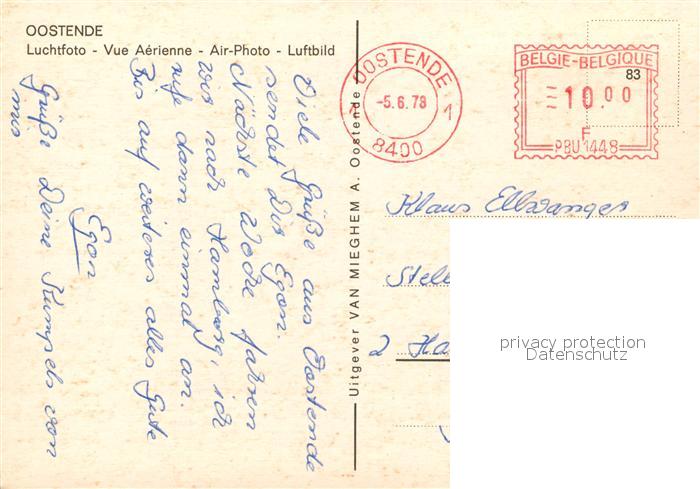 OOSTENDE
Luchtfoto - Vue Aérienne - Air-Photo - Luftbild
Viele Grüße aus Oostende
sendet Dir Egon.
Nächste Woche fahren
wir nach Hamburg, ich
rufe dann einmal an.
Bis auf weiteres alles Gute
Egon
Grüße Deine Kumpels von
mir
Uitgever VAN MIEGHEM A. Oostende
OOSTENDE
1 -5.6.78 1
8400
BELGIE-BELGIQUE
83
10.00
F
PBU1448
Klaus Ellwanger
Stell
2 Ha
privacy protection
Datenschutz